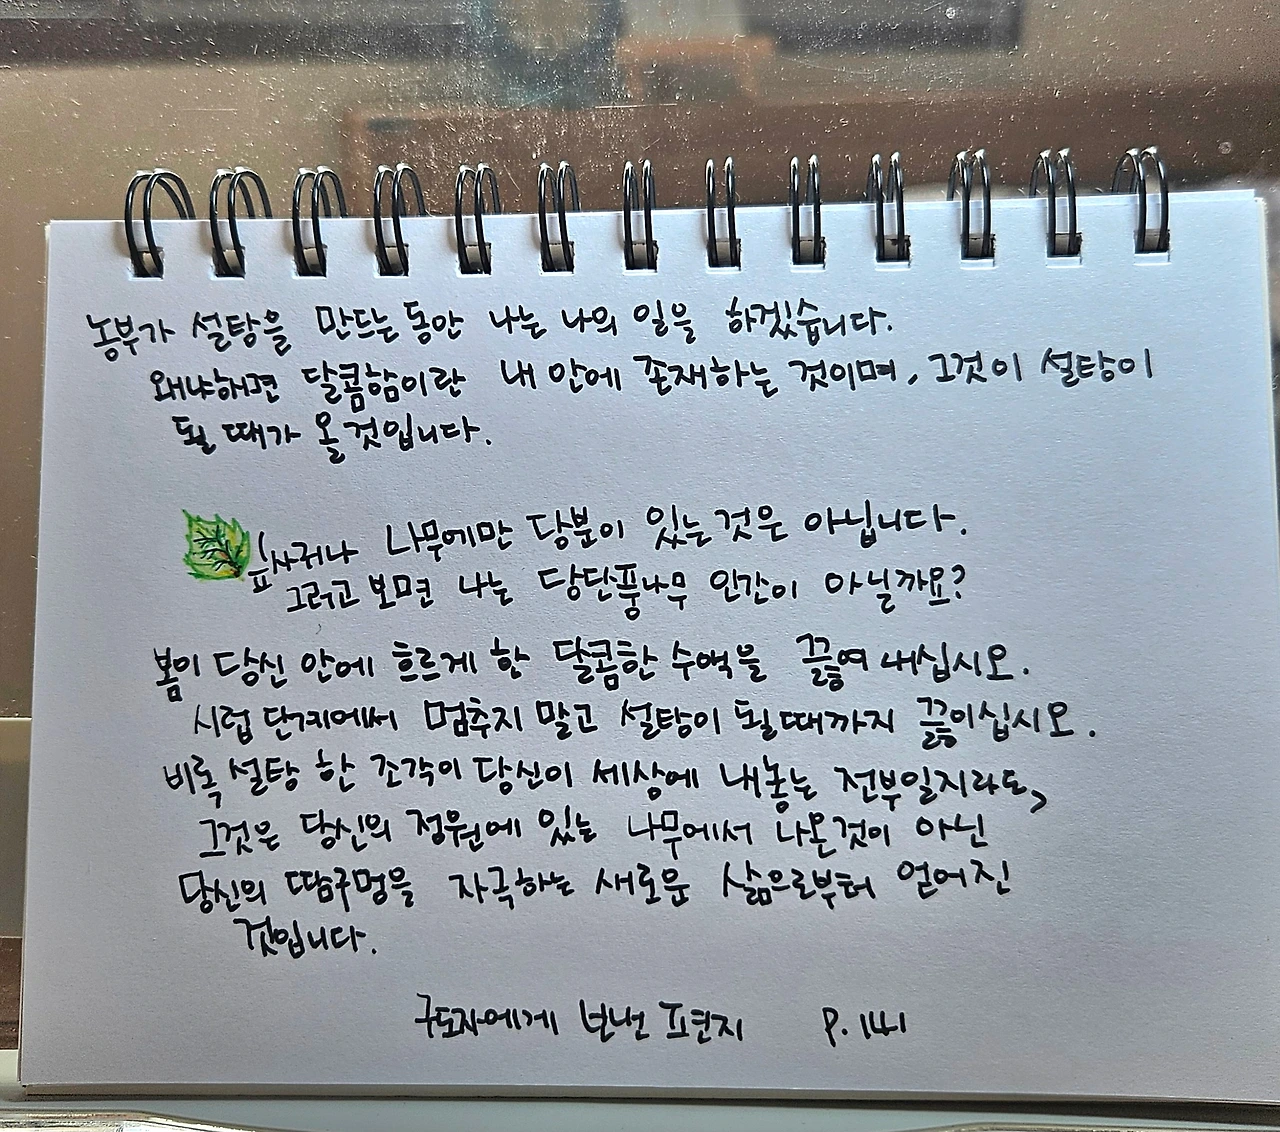 농부가 설탕을 만드는 동안 나는 나의 일을 하겠습니다.
왜냐하면 달콤함이란 내 안에 존재하는 것이며, 그것이 설탕이
될 때가 올 것입니다.
사귀나 나무에만 당분이 있는 것은 아닙니다.
그러고 보면 나는 당단풍나무 인간이 아닐까요?
봄이 당신 안에 흐르게 한 달콤한 수액을 끓여 내십시오.
시럽 단계에서 멈추지 말고 설탕이 될 때까지 끓이십시오.
비록 설탕 한 조각이 당신이 세상에 내놓는 전부일지라도,
그것은 당신의 정원에 있는 나무에서 나온것이 아닌
당신의 땀구멍을 자극하는 새로운 삶으로부터 얻어진
것입니다.
구도자에게 보낸 편지 P. 141